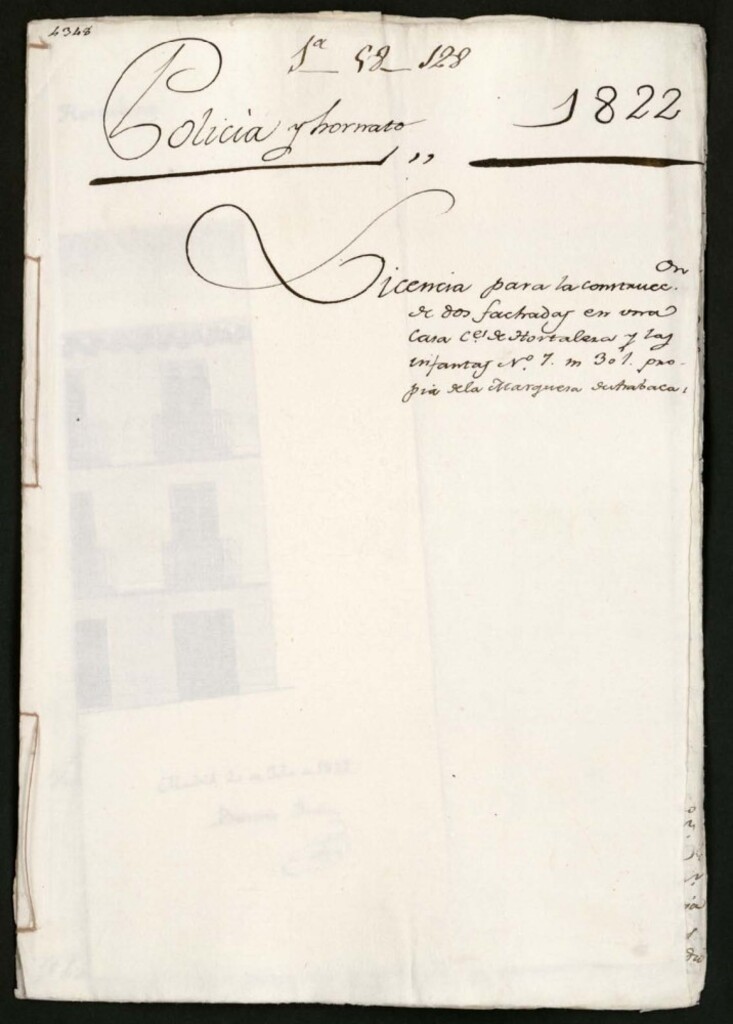 4348
1ª 58-128
Policia y hornato,, 1822
Licencia para la construcc.on
de dos fachadas en una
Casa C.es de Hortaleza y las
infantas N.º 7. m 301. pro-
pia de la Marquesa de